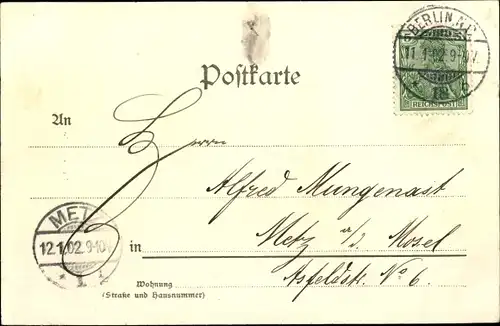 BERLIN.N.
11.1.02.9-10V.
REICHSPOST
Postkarte
An
Herrn
Alfred Mungenast
METZ
12.1.02.9-10V.
in Metz a/d. Mosel
Asfeldstr. No 6.
Wohnung
(Straße und Hausnummer)